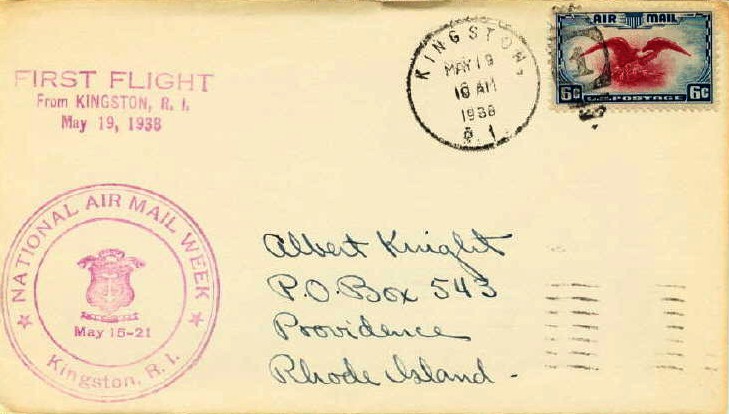 FIRST FLIGHT
From KINGSTON, R. I.
May 19, 1938
KINGSTON,
MAY 19
10 AM
1938
R. I.
AIR MAIL
6¢ U.S. POSTAGE 6¢
1
NATIONAL AIR MAIL WEEK
May 15-21
Kingston, R. I.
Albert Knight
P.O. Box 543
Providence
Rhode Island -